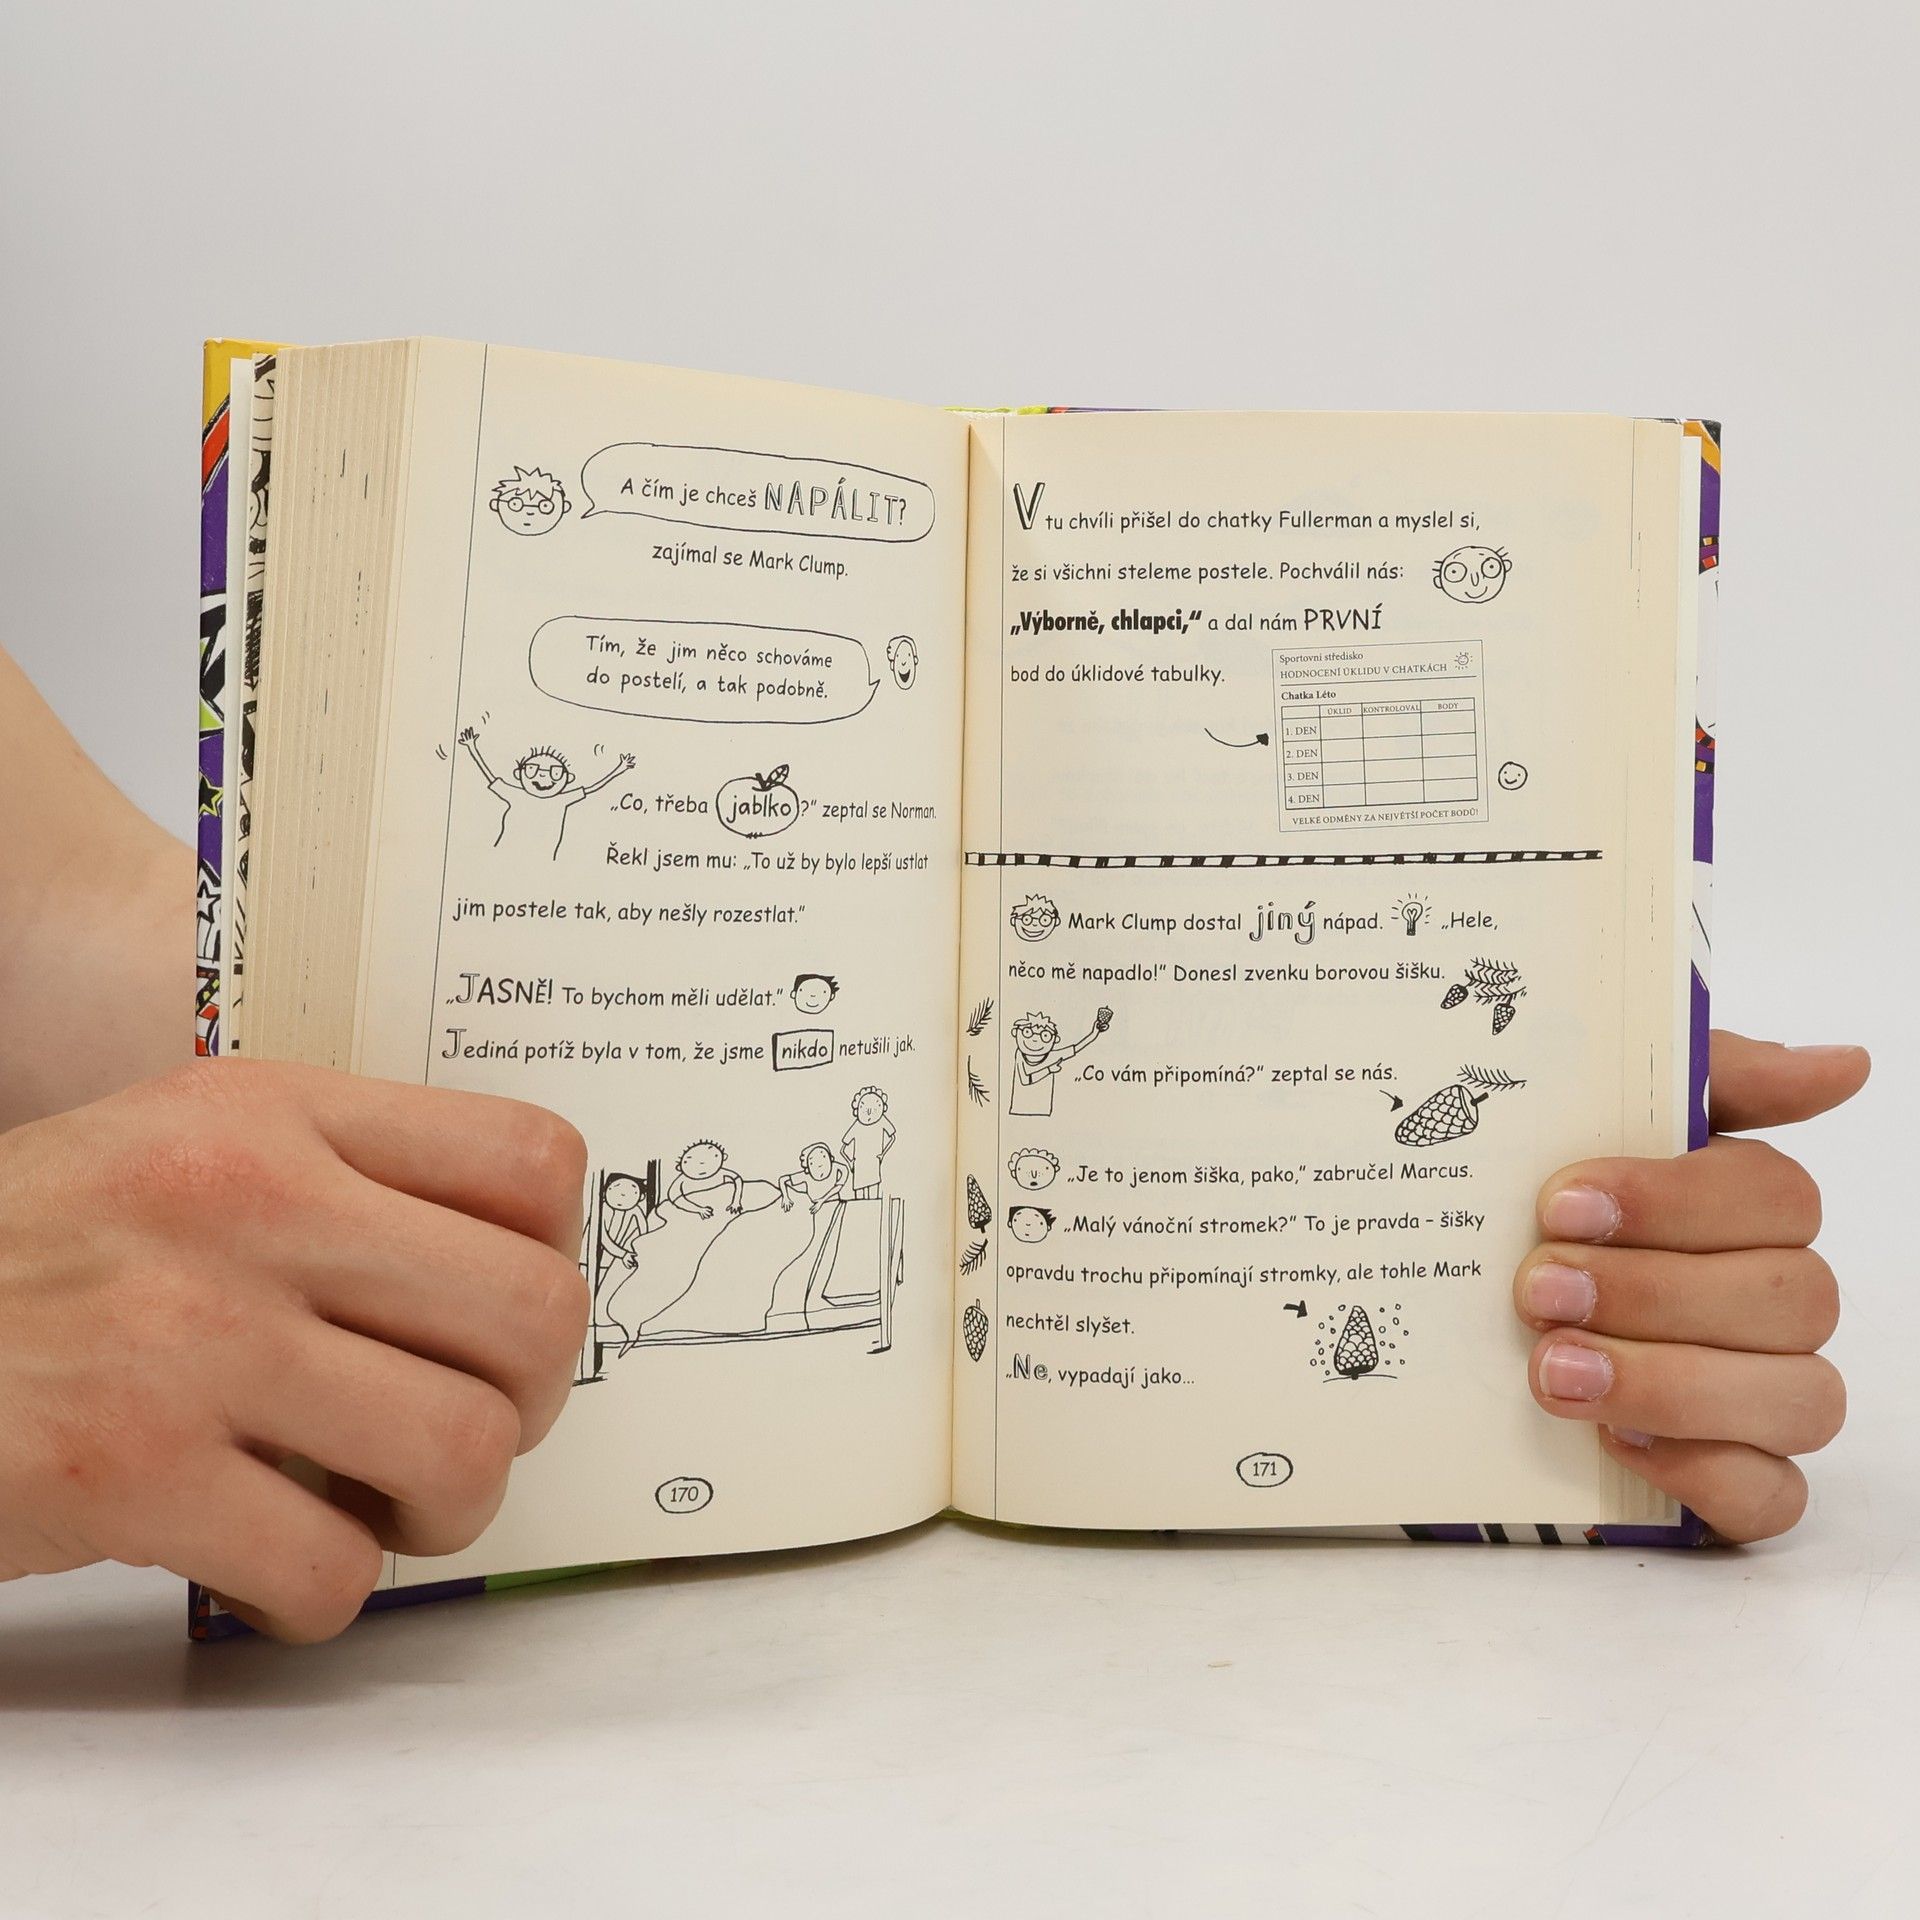 A čím je chceš NAPÁLIT?
zajímal se Mark Clump.
Tím, že jim něco schováme
do postelí, a tak podobně.
„Co, třeba jablko?“ zeptal se Norman.
Řekl jsem mu: „To už by bylo lepší ustlat
jim postele tak, aby nešly rozestlat.“
„JASNĚ! To bychom měli udělat.“
Jediná potíž byla v tom, že jsme nikdo netušili jak.
170
V tu chvíli přišel do chatky Fullerman a myslel si,
že si všichni steleme postele. Pochválil nás:
„Výborně, chlapci,“ a dal nám PRVNÍ
bod do úklidové tabulky.
Sportovní středisko
HODNOCENÍ ÚKLIDU V CHATKÁCH
Chatka Léto
ÚKLID KONTROLOVAL BODY
1. DEN
2. DEN
3. DEN
4. DEN
VELKÉ ODMĚNY ZA NEJVĚTŠÍ POČET BODŮ!
Mark Clump dostal jiný nápad. „Hele,
něco mě napadlo!“ Donesl zvenku borovou šišku.
„Co vám připomíná?“ zeptal se nás.
„Je to jenom šiška, pako,“ zabručel Marcus.
„Malý vánoční stromek?“ To je pravda – šišky
opravdu trochu připomínají stromky, ale tohle Mark
nechtěl slyšet.
„Ne, vypadají jako...
171